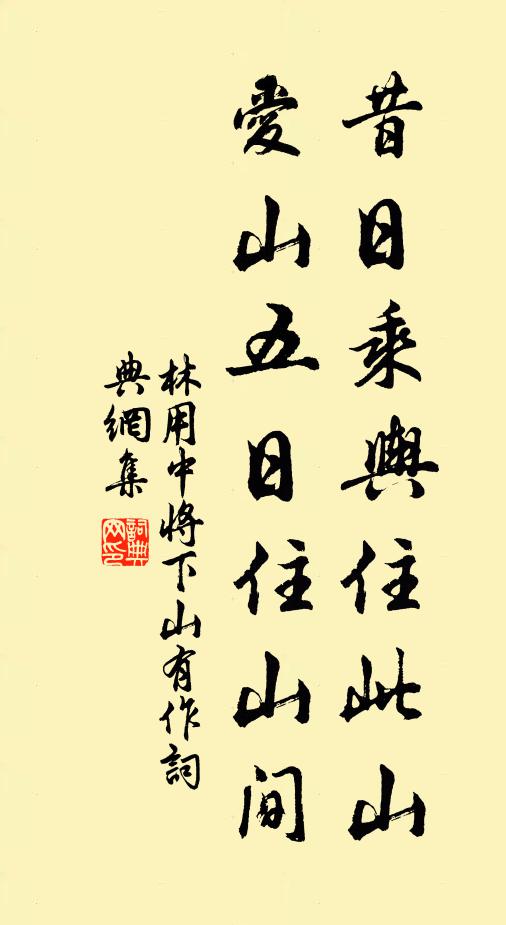 昔日乘興住此山
愛山五日住山间
林用中將下山有作詞
典網集
詞典
网印